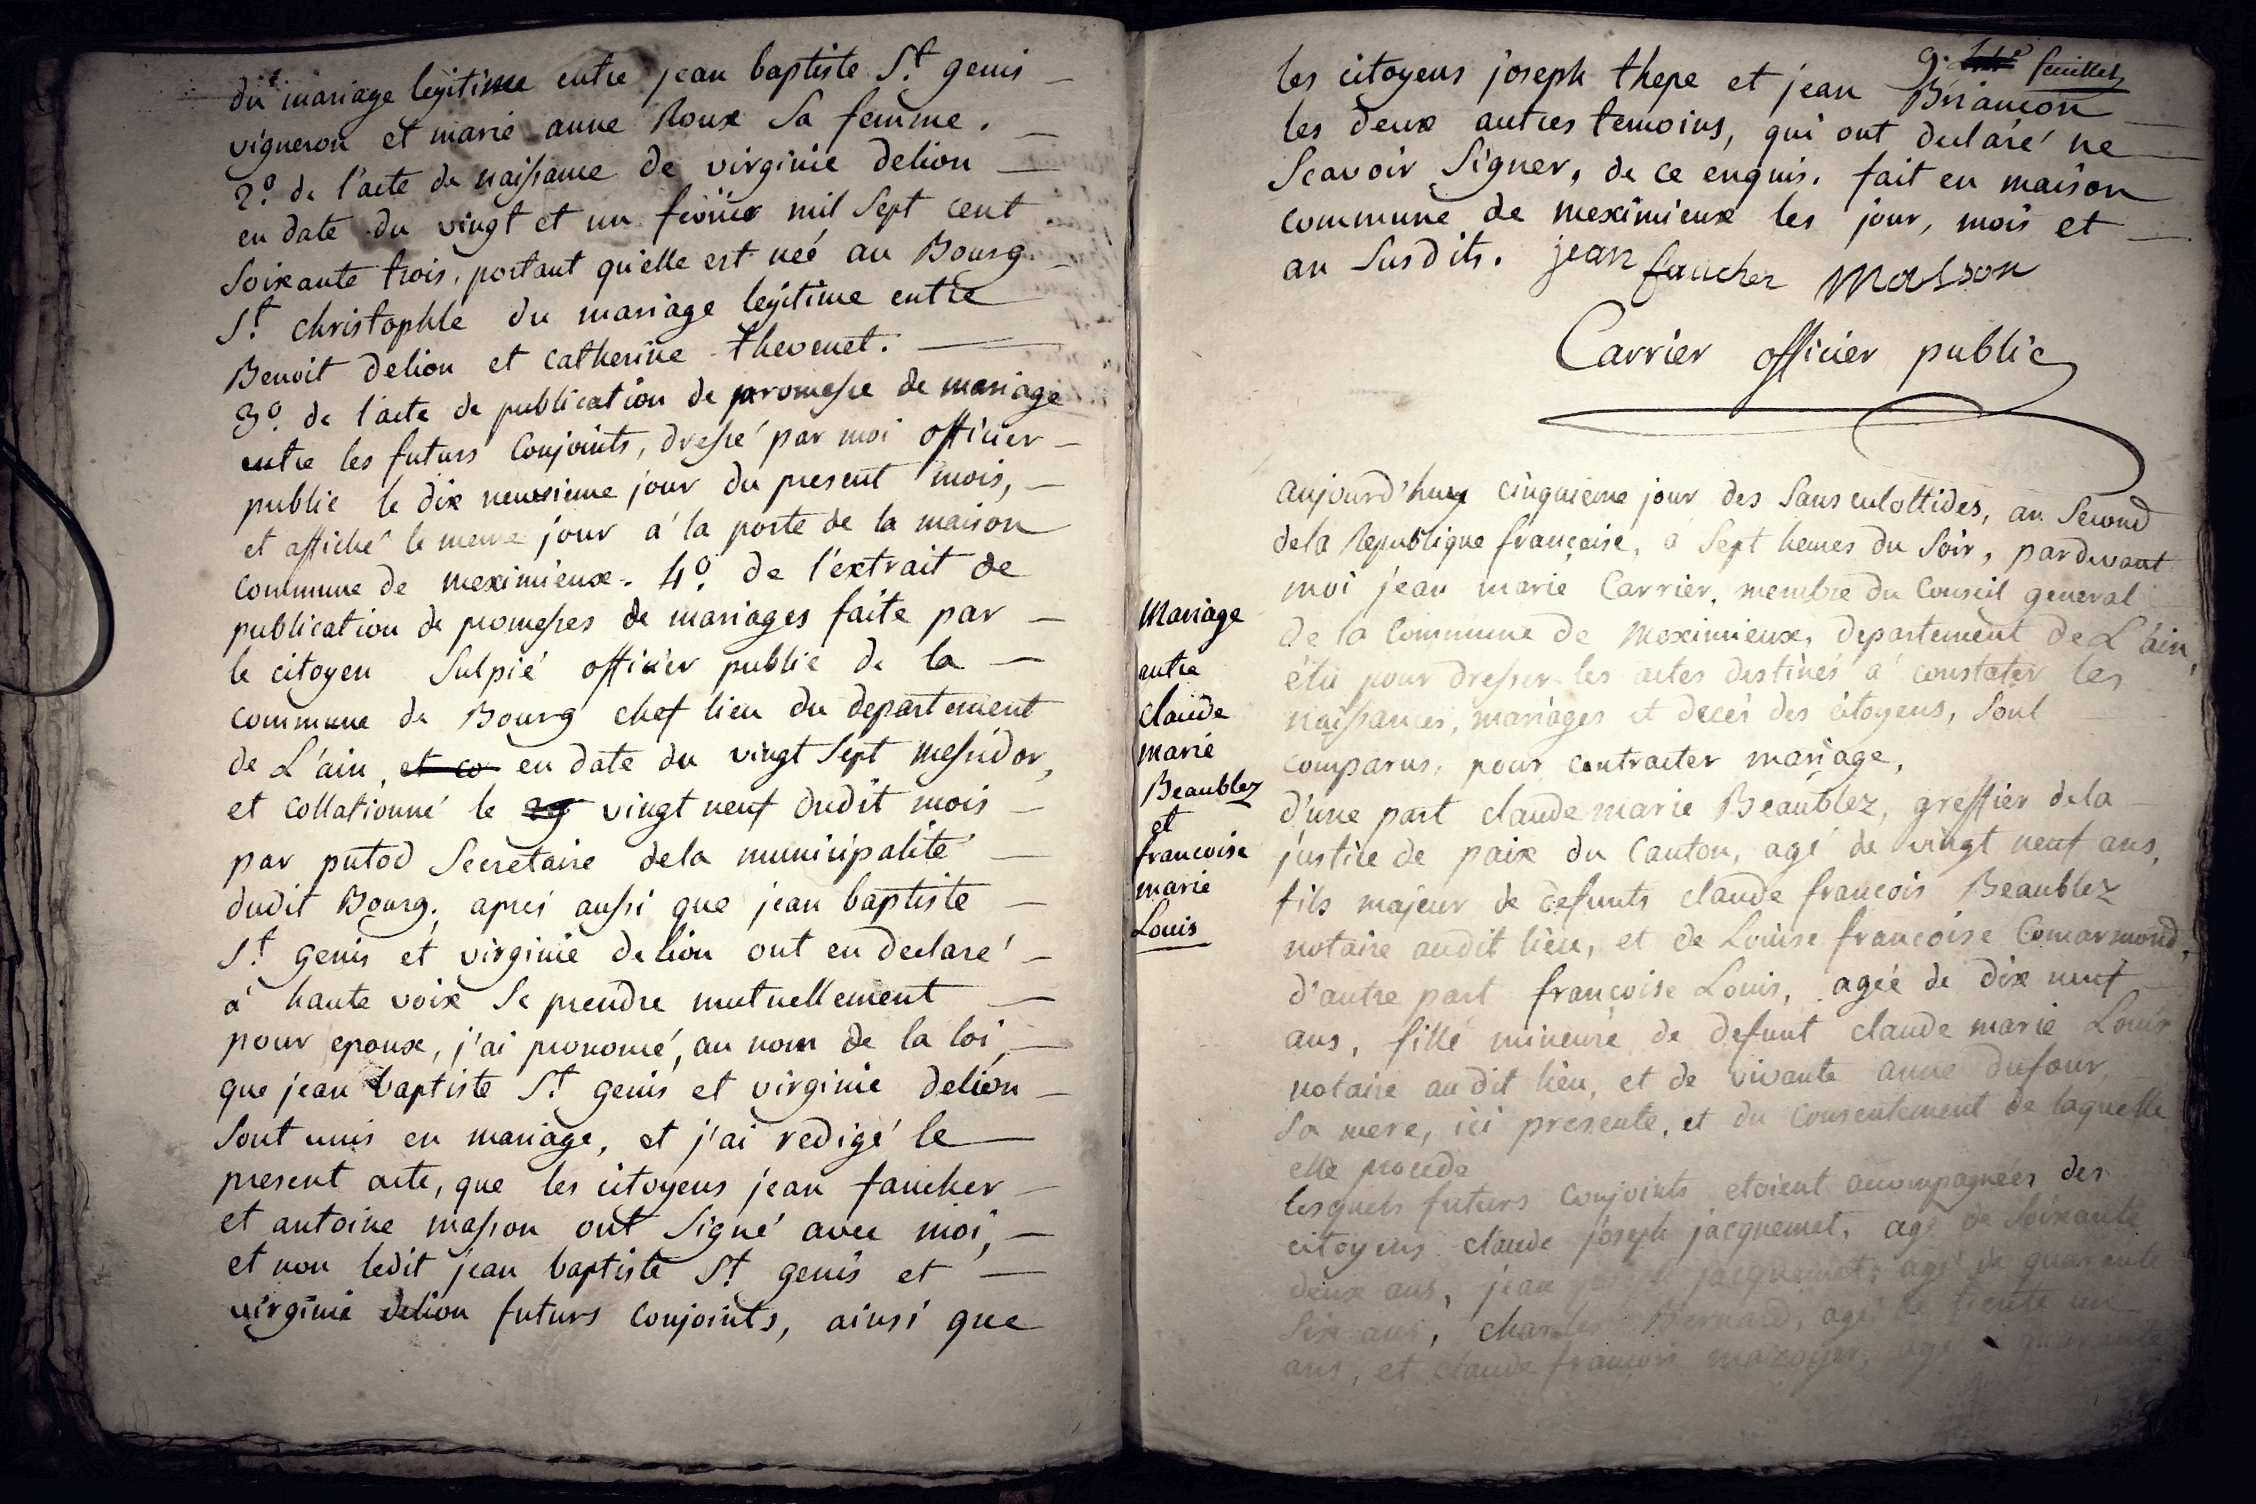 du mariage legitime entre jean baptiste S.t genis
vigneron et marie anne Roux Sa femme.
2.o de l'acte de naissance de virginie delion
en date du vingt et un fevrier mil Sept cent
Soixante trois, portant qu'elle est neé au Bourg
S.t christophle du mariage legitime entre
Benoit delion et catherine thevenet.
3.o de l'acte de publication de promesse de mariage
entre les futurs Conjoints, dressé par moi officier
public le dix neuvieme jour du present mois,
et affiché le meme jour a la porte de la maison
commune de meximieux. 4.o de l'extrait de
publication de promesses de mariages faite par
le citoyen Sulpié officier public de la
commune de Bourg chef lieu du departement
de L'ain, et co en date du vingt Sept messidor,
et collationné le 29 vingt neuf dudit mois
par putod Secretaire dela municipalité
dudit Bourg. aprés aussi que jean baptiste
S.t genis et virginie delion ont eu declaré
a haute voix Se prendre mutuellement
pour epoux, j'ai prononcé, au nom de la loi,
que jean baptiste S.t genis et virginie delion
Sont unis en mariage, et j'ai redigé le
present acte, que les citoyens jean faucher
et antoine masson ont Signé avec moi,
et non ledit jean baptiste S.t genis et
virginie delion futurs conjoints, ainsi que
9.e feuillet
les citoyens joseph thepe et jean Briancon
les deux autres temoins, qui ont declaré ne
Scavoir Signer, de ce enquis. fait en maison
commune de meximieux les jour, mois et
an Susdits. jean faucher Masson
Carrier officier public
aujourd'huy cinquieme jour des Sans culottides, an Second
dela Republique française, a Sept heures du Soir, pardevant
moi jean marie Carrier, membre du Conseil general
de la Commune de Meximieux, departement de L'ain,
élu pour dresser les actes destinés a constater les
naissances, mariages et decés des citoyens, Sont
comparus, pour contracter mariage,
d'une part claude marie Beaublez, greffier dela
justice de paix du Canton, agé de vingt neuf ans,
fils majeur de defunts claude francois Beaublez
notaire audit lieu, et de Louise francoise Comarmond,
d'autre part françoise Louis, ageé de dix neuf
ans, fille mineure de defunt claude marie Louis
notaire audit lieu, et de vivante anne dufour,
Sa mere, ici presente, et du consentement de laquelle
elle procede
lesquels futurs Conjoints etoient accompagnées des
citoyens claude joseph jacquemet, agé de Soixante
deux ans, jean joseph jacquemet, agé de quarante
Six ans, charles Bernard, agé de trente un
ans, et claude francois mazoyer, agé quarante
Mariage
entre
claude
marie
Beaublez
et
francoise
marie
Louis